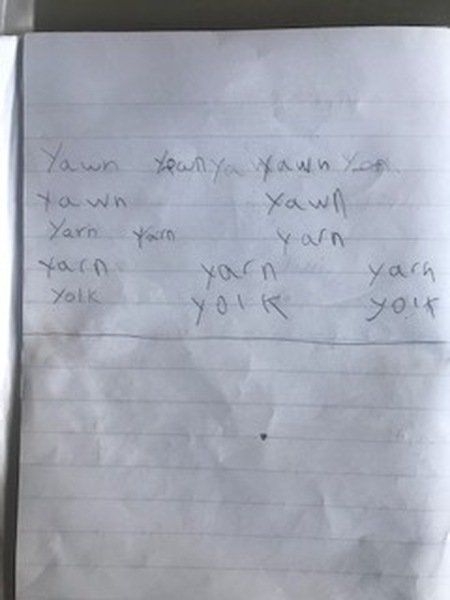 Yawn Yawn Ya Yawn
Yawn Yawn
Yarn Yarn Yarn
Yarn yarn yarn
Yolk yolk yolk